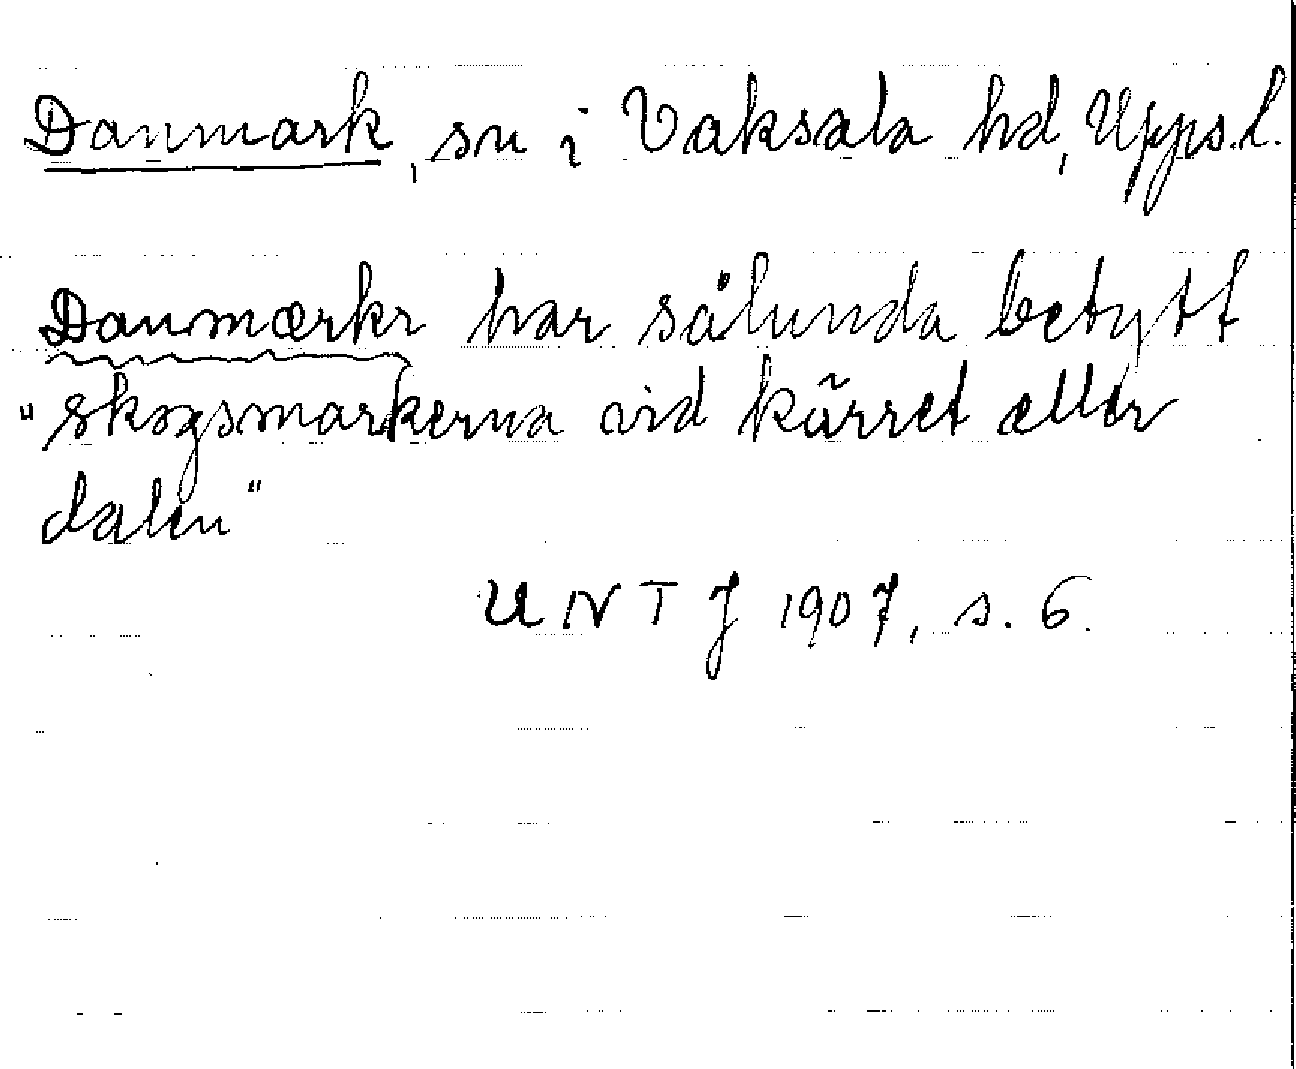 Danmark, sn i Vaksala hd, Upps.l.
Danmærkr har sålunda betytt
"skogsmarkerna vid kärret eller
dalen"
UNTJ 1907, s. 6.